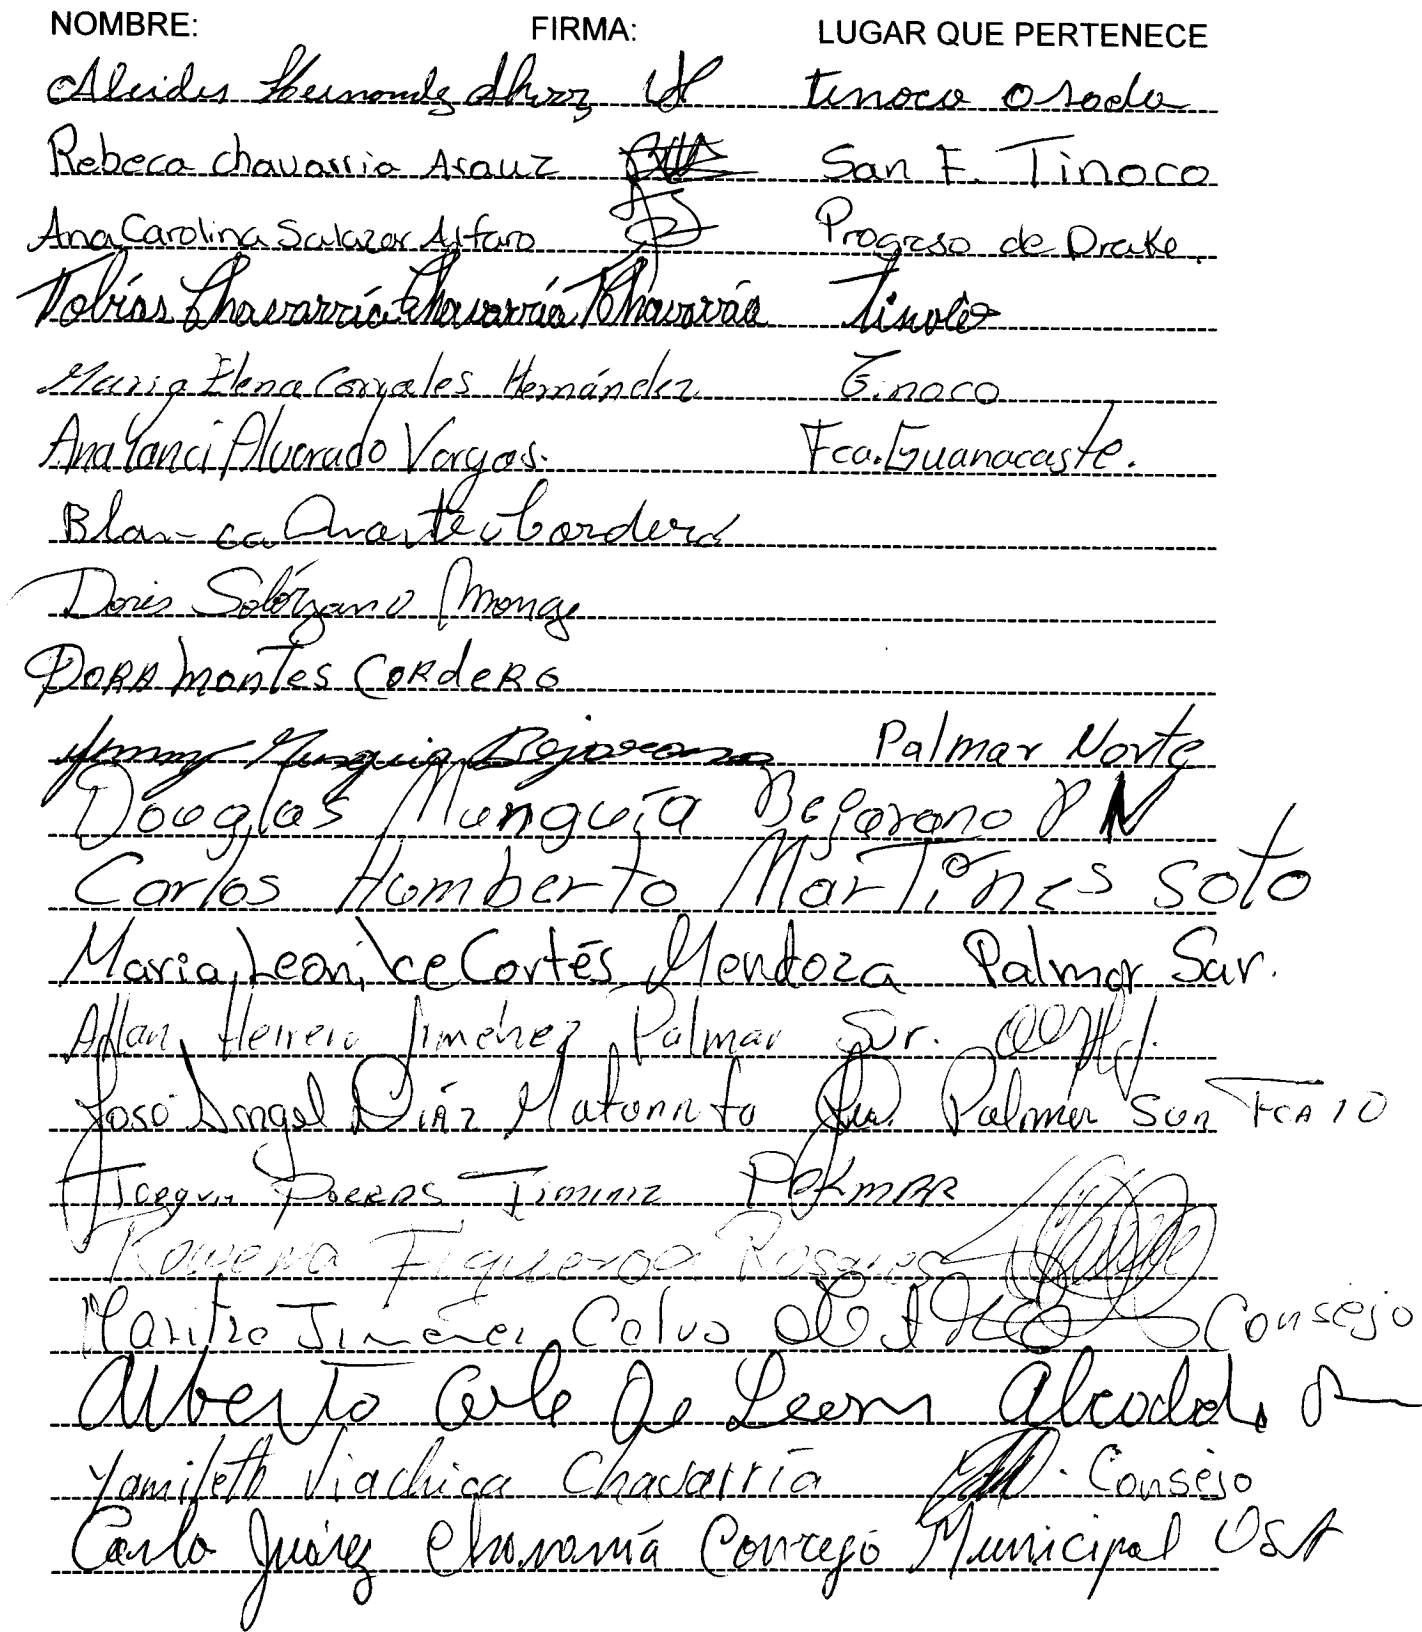 NOMBRE: FIRMA: LUGAR QUE PERTENECE
Alcides Hernandez tinoco
Rebeca chavarria Arauz San F. Tinoco
Ana Carolina Salazar Alfaro Progreso de Drake
Tobías Chavarría Chavarría TChavarría Tinoco
Maria Elena Corrales Hernández Tinoco
Ana Yanci Alvarado Vargas. Fca. Guanacaste.
Blanca Cordero
Doris Solórzano Monge
DORA MONTES CORDERO
Munguia Bejarano Palmar Norte
Douglas Munguía Bejarano P N
Carlos Humberto Martines Soto
Maria Leonilce Cortés Mendoza Palmar Sur.
Allan Herrera Jiménez Palmar Sur.
José Angel Diáz Palmar Sur FCA 10
PORRAS
Rowena Figueroa Rosales
Maritza Jiménez Calvo Consejo
Alberto Cole De Leon Alcalde
Yamileth Viachica Chavarría Consejo
Carlo Juárez Concejo Municipal OSA